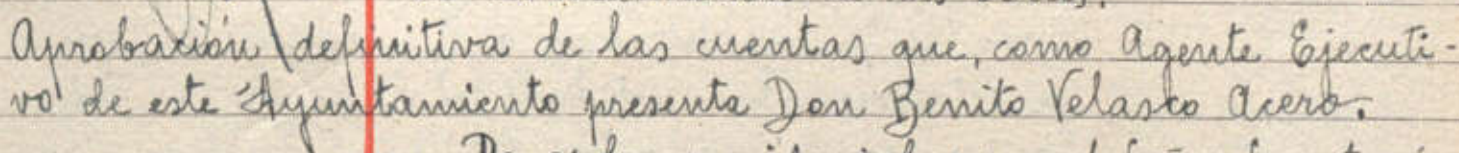 Aprobación definitiva de las cuentas que, como Agente Ejecuti-
vo de este Ayuntamiento presenta Don Benito Velasco Acero.